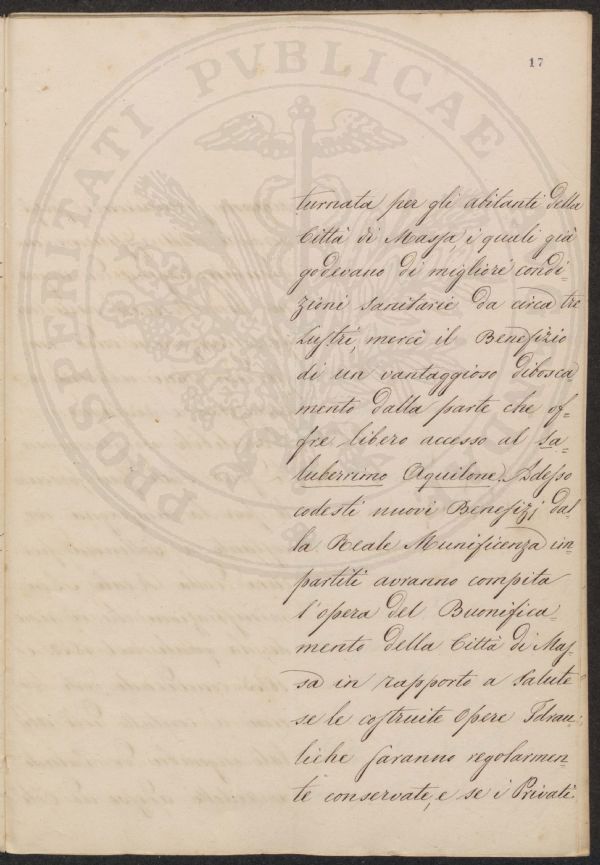 17
PROSPERITATI PVBLICAE
turnata per gli abitanti della
Città di Massa, i quali già
godevano di migliori condi=
zioni sanitarie da circa tre
Lustri, mercè il Benefizio
di un vantaggioso dibosca=
mento dalla parte che of=
fre libero accesso al sa=
luberrimo Aquilone. Adesso
codesti nuovi Benefizj dal=
la Reale Munificenza im=
partiti avranno compita
l'opera del Buonifica=
mento della Città di Mas=
sa in rapporto a Salute
se le costruite Opere Idrau=
liche saranno regolarmen=
te conservate, e se i Privati